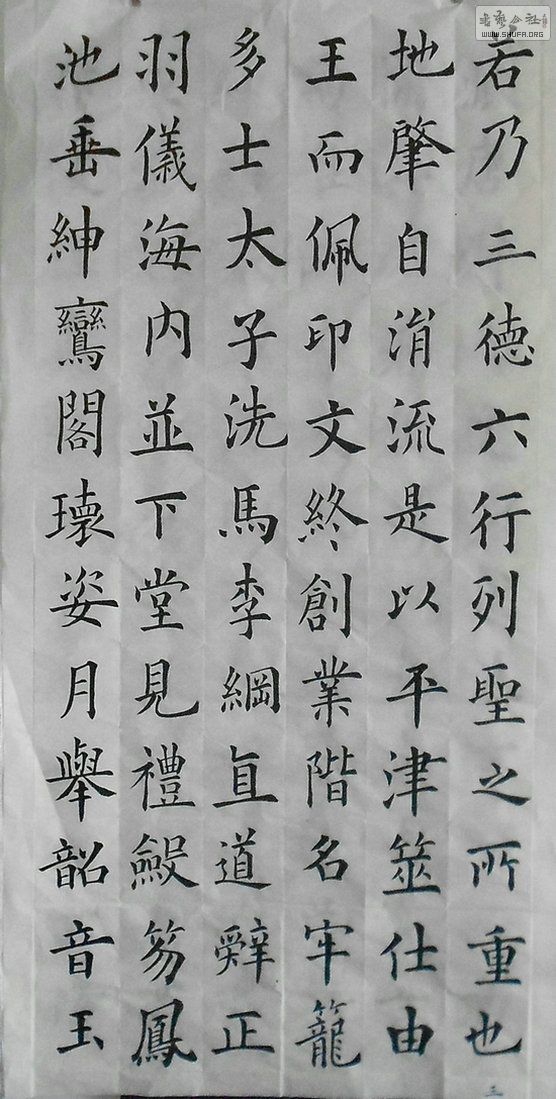 若乃三德六行列聖之所重也
地肇自涓流是以平津筮仕由
王而佩印文終創業階名牢籠
多士太子洗馬李綱直道辭正
羽儀海内並下堂見禮毀笏鳳
池垂紳鸞閣瓌姿月舉韶音玉
三
WWW.SHUFA.ORG